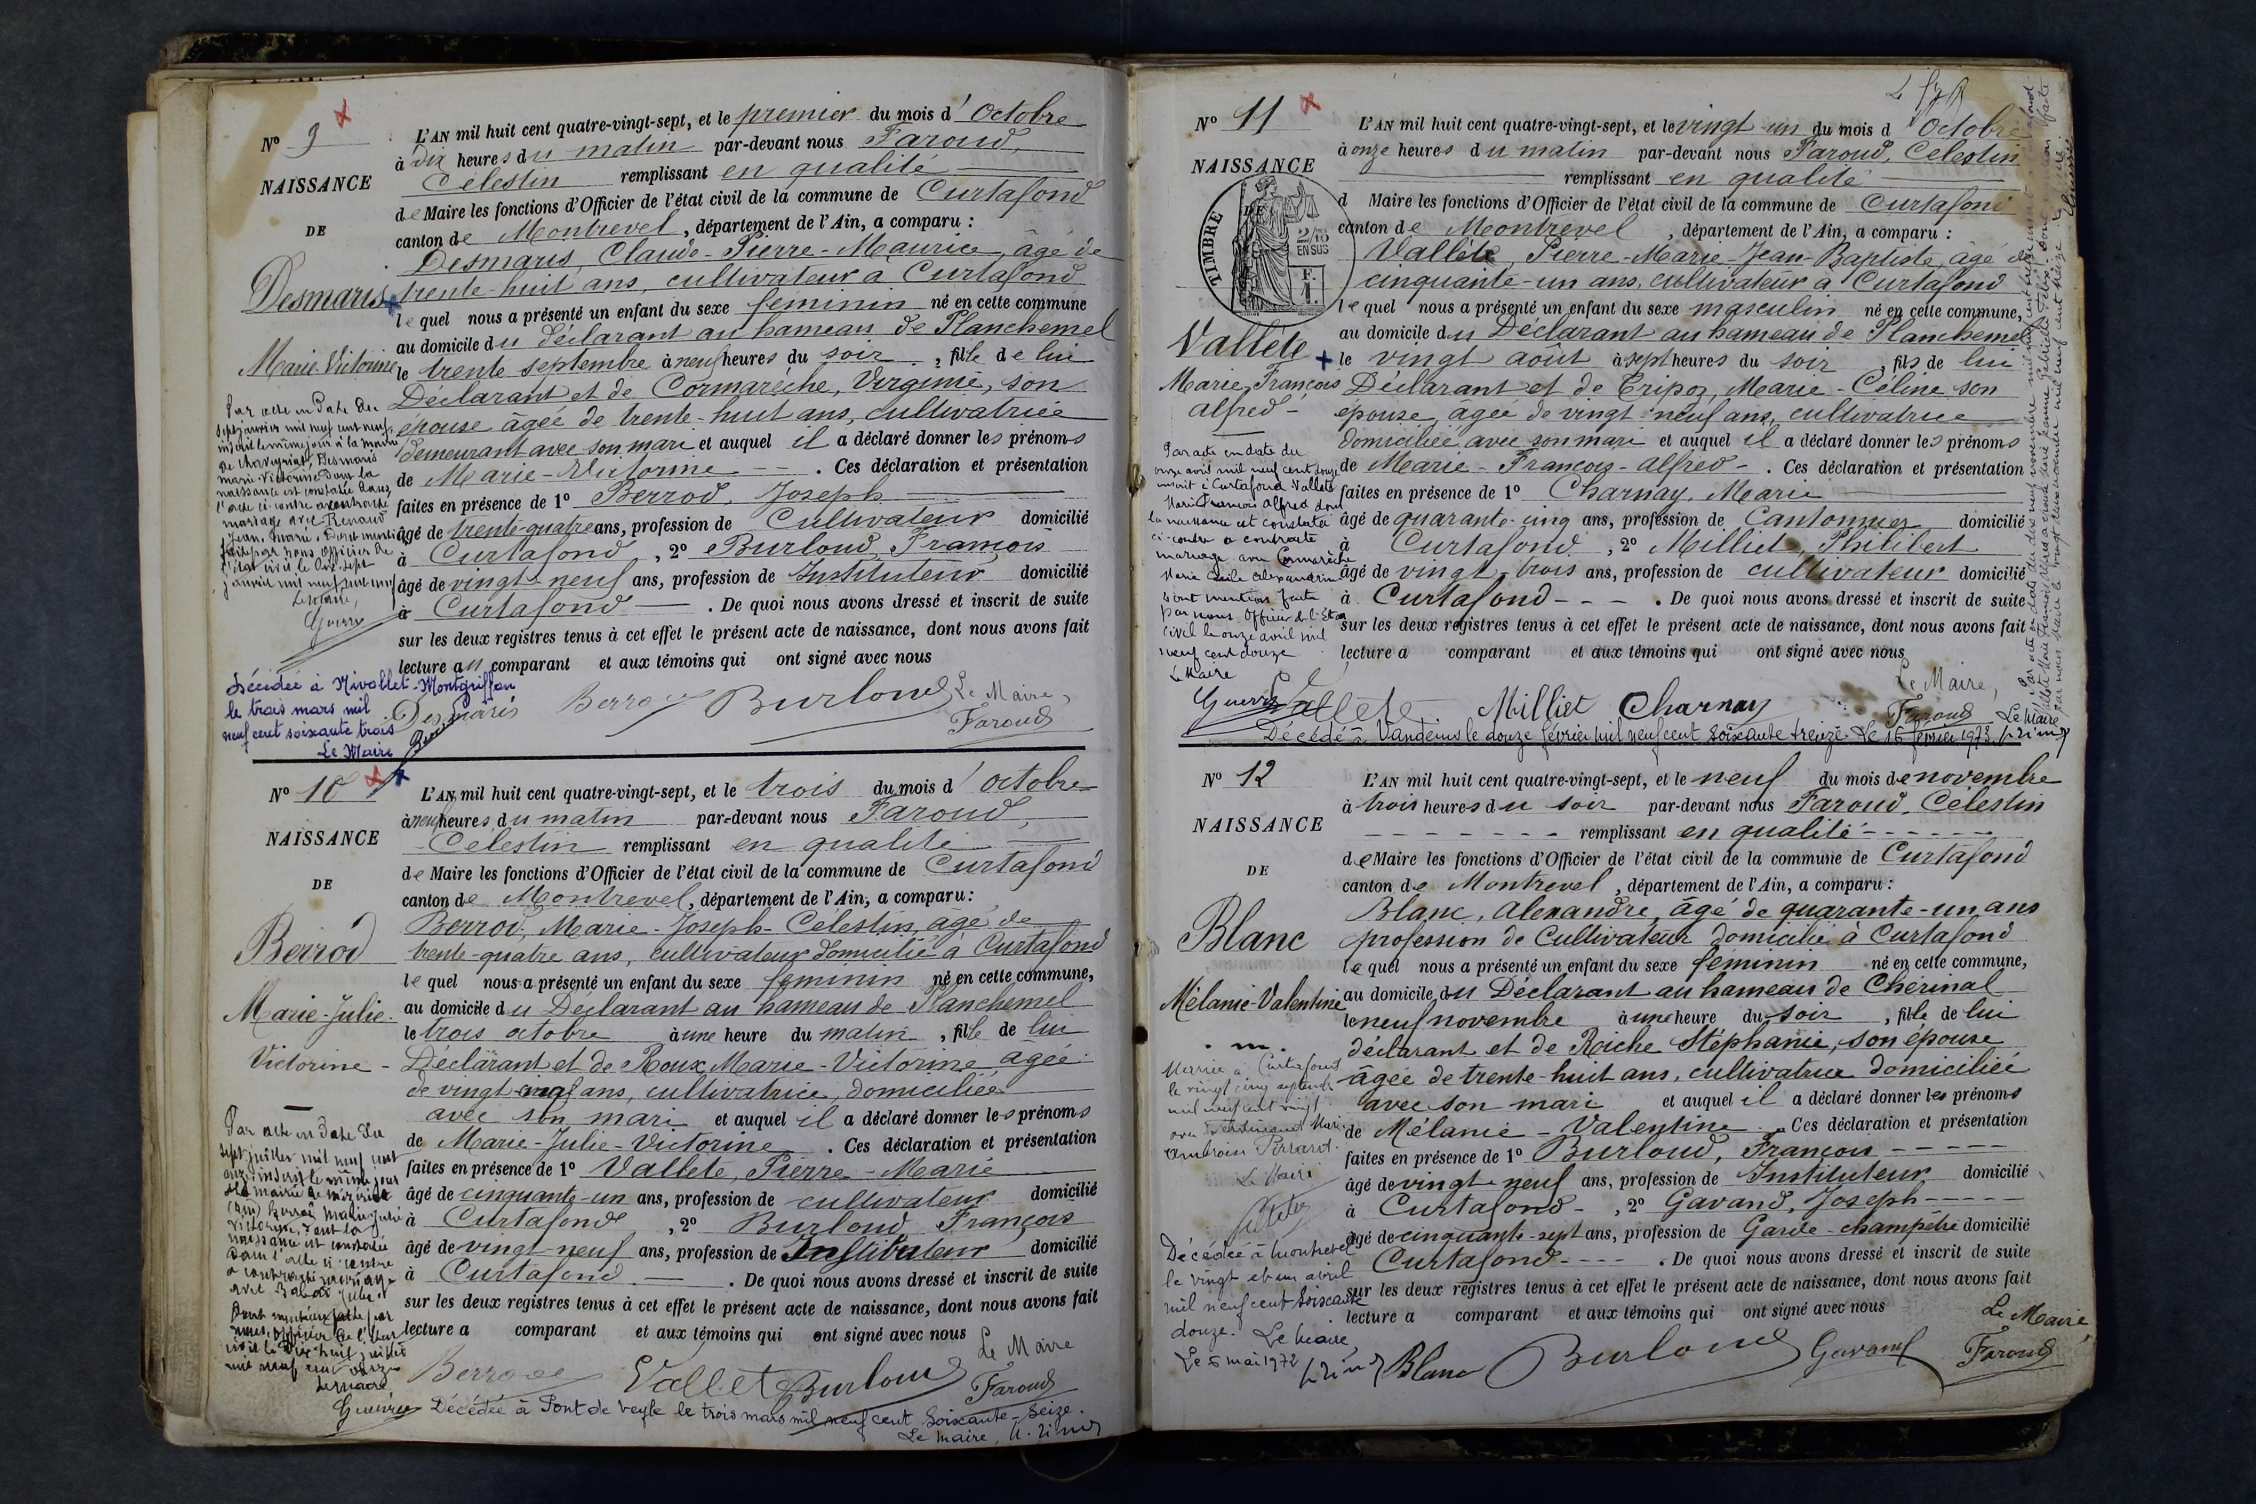 Nº 9
NAISSANCE
DE
Desmaris
Marie-Victorine
L'AN mil huit cent quatre-vingt-sept, et le premier du mois d'Octobre
à dix heures du matin par-devant nous Faroud,
Célestin remplissant en qualité
de Maire les fonctions d'Officier de l'état civil de la commune de Curtafond
canton de Montrevel, département de l'Ain, a comparu :
Desmaris, Claude-Pierre-Maurice, âgé de
trente-huit ans, cultivateur à Curtafond
lequel nous a présenté un enfant du sexe féminin né en cette commune
au domicile du Déclarant au hameau de Planchemel
le trente septembre à neuf heures du soir, fille de lui
Déclarant et de Cormarèche, Virginie, son
épouse âgée de trente-huit ans, cultivatrice
demeurant avec son mari et auquel il a déclaré donner les prénoms
de Marie-Victorine -- . Ces déclaration et présentation
faites en présence de 1º Berrod, Joseph
âgé de trente-quatre ans, profession de Cultivateur domicilié
à Curtafond, 2º Burloud, François
âgé de vingt-neuf ans, profession de Instituteur domicilié
à Curtafond — . De quoi nous avons dressé et inscrit de suite
sur les deux registres tenus à cet effet le présent acte de naissance, dont nous avons fait
lecture au comparant et aux témoins qui ont signé avec nous
Par acte en date du
sept janvier mil neuf cent neuf,
inscrit le même jour à la mairie
de Marie Desmaris
Marie-Victorine dont la
naissance est constatée dans
l'acte ci-contre a contracté
mariage avec Renaud
Jean-Marie. Dont mention
faite par nous Officier de
l'état civil le dix-sept
janvier mil neuf cent neuf
Le Maire,
Guerry
Desmaris Berrod Burloud Le Maire,
Faroud
Décédée à Nivollet-Montgriffon
le trois mars mil
neuf cent soixante trois
Le Maire
Nº 10
NAISSANCE
DE
Berrod
Marie-Julie-
Victorine -
L'AN mil huit cent quatre-vingt-sept, et le trois du mois d'Octobre
à neuf heures du matin par-devant nous Faroud,
Célestin remplissant en qualité
de Maire les fonctions d'Officier de l'état civil de la commune de Curtafond
canton de Montrevel, département de l'Ain, a comparu :
Berrod, Marie-Joseph-Célestin, âgé de
trente-quatre ans, cultivateur domicilié à Curtafond
lequel nous a présenté un enfant du sexe féminin né en cette commune,
au domicile du Déclarant au hameau de Planchemel
le trois octobre à une heure du matin, fille de lui
Déclarant et de Roux Marie-Victorine âgée
de vingt ans, cultivatrice, domiciliée
avec son mari et auquel il a déclaré donner les prénoms
de Marie-Julie-Victorine . Ces déclaration et présentation
faites en présence de 1º Valléte, Pierre-Marie
âgé de cinquante-un ans, profession de cultivateur domicilié
à Curtafond, 2º Burloud François
âgé de vingt-neuf ans, profession de Instituteur domicilié
à Curtafond — . De quoi nous avons dressé et inscrit de suite
sur les deux registres tenus à cet effet le présent acte de naissance, dont nous avons fait
lecture a comparant et aux témoins qui ont signé avec nous
Par acte en date du
sept juillet mil neuf cent
onze inscrit le même jour
à la mairie de Mézériat
(Ain) Berrod Marie Julie
Victorine, dont la
naissance est constatée
dans l'acte ci-contre
a contracté mariage
avec
Dont mention faite par
nous, Officier de l'état
civil le dix huit juillet
mil neuf cent onze
Le maire
Guerry
Berrod Vallet Burloud Le Maire
Faroud
Décédée à Pont de Veyle le trois mars mil neuf cent soixante-seize.
Le maire,
Nº 11
NAISSANCE
DE
TIMBRE
2/10
EN SUS
Valléte
Marie, François
Alfred -
L'AN mil huit cent quatre-vingt-sept, et le vingt-un du mois d'Octobre
à onze heures du matin par-devant nous Faroud, Célestin
remplissant en qualité
d Maire les fonctions d'Officier de l'état civil de la commune de Curtafond
canton de Montrevel, département de l'Ain, a comparu :
Valléte, Pierre-Marie-Jean-Baptiste, âgé de
cinquante-un ans, cultivateur à Curtafond
lequel nous a présenté un enfant du sexe masculin né en cette commune,
au domicile du Déclarant au hameau de Planchemel
le vingt août à sept heures du soir, fils de lui
Déclarant et de Tripoz, Marie-Céline son
épouse, âgée de vingt-neuf ans, cultivatrice
domiciliée avec son mari et auquel il a déclaré donner les prénoms
de Marie-François-Alfred- . Ces déclaration et présentation
faites en présence de 1º Charnay, Marie
âgé de quarante-cinq ans, profession de Cantonnier domicilié
à Curtafond, 2º Milliet, Philibert
âgé de vingt-trois ans, profession de cultivateur domicilié
à Curtafond - - - . De quoi nous avons dressé et inscrit de suite
sur les deux registres tenus à cet effet le présent acte de naissance, dont nous avons fait
lecture a comparant et aux témoins qui ont signé avec nous
Par acte en date du
onze avril mil neuf cent douze
inscrit à Curtafond Valléte
Marie François Alfred dont
la naissance est constatée
ci-contre a contracté
mariage avec Cormarèche
Marie Cécile Alexandrine
dont mention faite
par nous Officier de l'État
civil le onze avril mil
neuf cent douze
Le Maire
Guerry
Vallete Milliet Charnay Le Maire,
Faroud
Décédé à Vandeins le douze février mil neuf cent soixante treize. Le 16 février 1973. Le Maire
Nº 12
NAISSANCE
DE
Blanc
Mélanie-Valentine
L'AN mil huit cent quatre-vingt-sept, et le neuf du mois de novembre
à trois heures du soir par-devant nous Faroud, Célestin
remplissant en qualité
de Maire les fonctions d'Officier de l'état civil de la commune de Curtafond
canton de Montrevel, département de l'Ain, a comparu :
Blanc, Alexandre, âgé de quarante-un ans
profession de Cultivateur domicilié à Curtafond
lequel nous a présenté un enfant du sexe féminin né en cette commune,
au domicile du Déclarant au hameau de Chérinal
le neuf novembre à une heure du soir, fille de lui
déclarant et de Roche Stéphanie, son épouse
âgée de trente-huit ans, cultivatrice domiciliée
avec son mari et auquel il a déclaré donner les prénoms
de Mélanie-Valentine. Ces déclaration et présentation
faites en présence de 1º Burloud, François
âgé de vingt-neuf ans, profession de Instituteur domicilié
à Curtafond -, 2º Gavand, Joseph
âgé de cinquante-sept ans, profession de Garde-champêtre domicilié
Curtafond - - - . De quoi nous avons dressé et inscrit de suite
sur les deux registres tenus à cet effet le présent acte de naissance, dont nous avons fait
lecture a comparant et aux témoins qui ont signé avec nous
Mariée à Curtafond
le vingt cinq septembre
mil neuf cent vingt
avec Marie
Ambroise
Le Maire
Décédée à Montrevel
le vingt et un avril
mil neuf cent soixante
douze. Le Maire,
Le 8 mai 1972
Blanc Burloud Gavand Le Maire,
Faroud